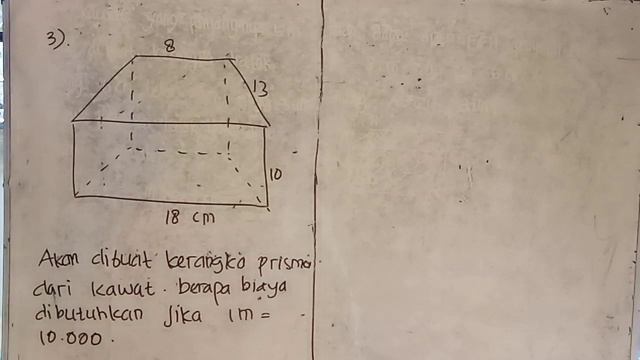 3).
8
13
10
18 cm
Akan dibuat kerangka prisma
dari kawat. berapa biaya
dibutuhkan jika 1m =
10.000.